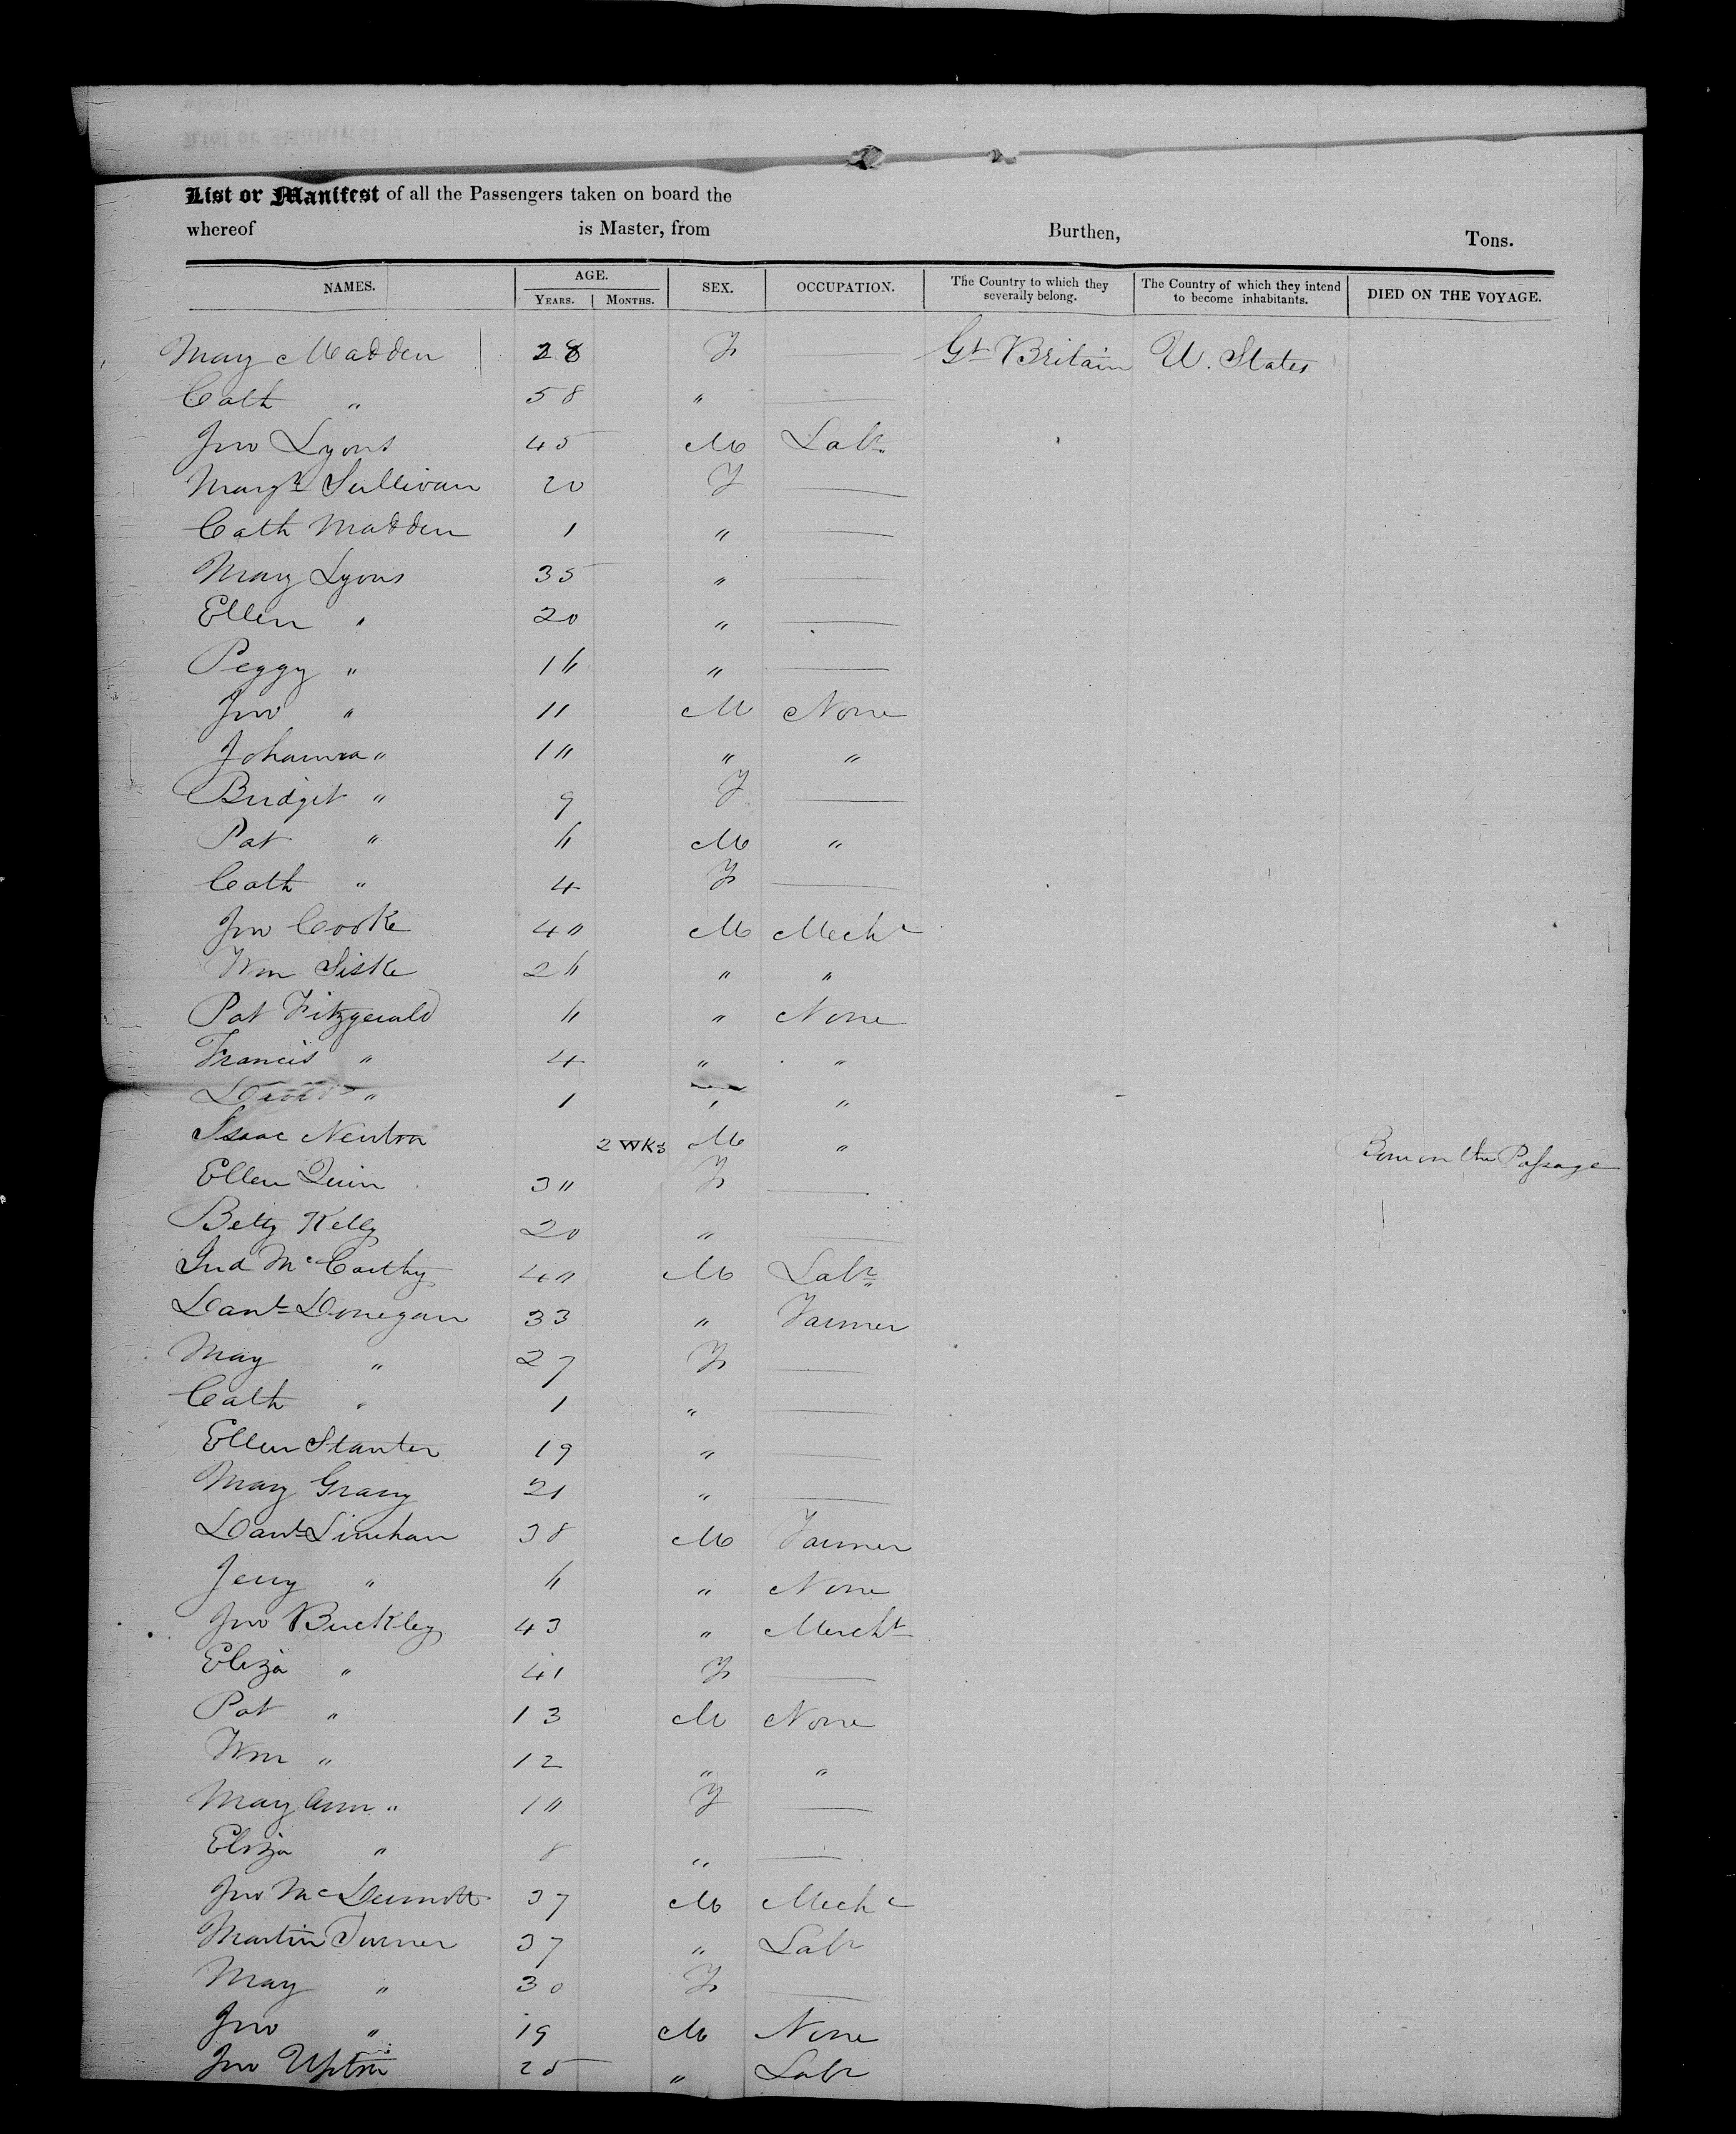 List or Manifest of all the Passengers taken on board the
whereof is Master, from Burthen, Tons.
NAMES. AGE. SEX. OCCUPATION. The Country to which they severally belong. The Country of which they intend to become inhabitants. DIED ON THE VOYAGE.
YEARS. MONTHS.
Mary Madden 28 F Gt Britain U. States
Cath " 58 "
Jno Lyons 45 M Labr
Margt Sullivan 20 F
Cath Madden 1 "
Mary Lyons 35 "
Ellen " 20 "
Peggy " 16 "
Jno " 11 M None
Johanna " 10 " "
Bridget " 9 F
Pat " 6 M "
Cath " 4 F
Jno Cooke 40 M Mechc
Wm Siske 26 " "
Pat Fitzgerald 6 " None
Francis " 4 " "
" 1 " "
Isaac Newton 2 WKS M " Born on the Passage
Ellen Quin 30 F
Betty Kelly 20 "
McCarthy 40 M Labr
Danl Donegan 33 " Farmer
Mary " 27 F
Cath " 1 "
Ellen Stanten 19 "
Mary Grany 21 "
Danl Linehan 38 M Farmer
Jerry " 6 " None
Jno Buckley 43 " Mercht
Eliza " 41 F
Pat " 13 M None
Wm " 12 " "
Mary Ann " 10 F
Eliza " 8 "
Jno McDermott 37 M Mechc
Martin Turner 37 " Labr
Mary " 30 F
Jno " 19 M None
Jno Upton 25 " Labr